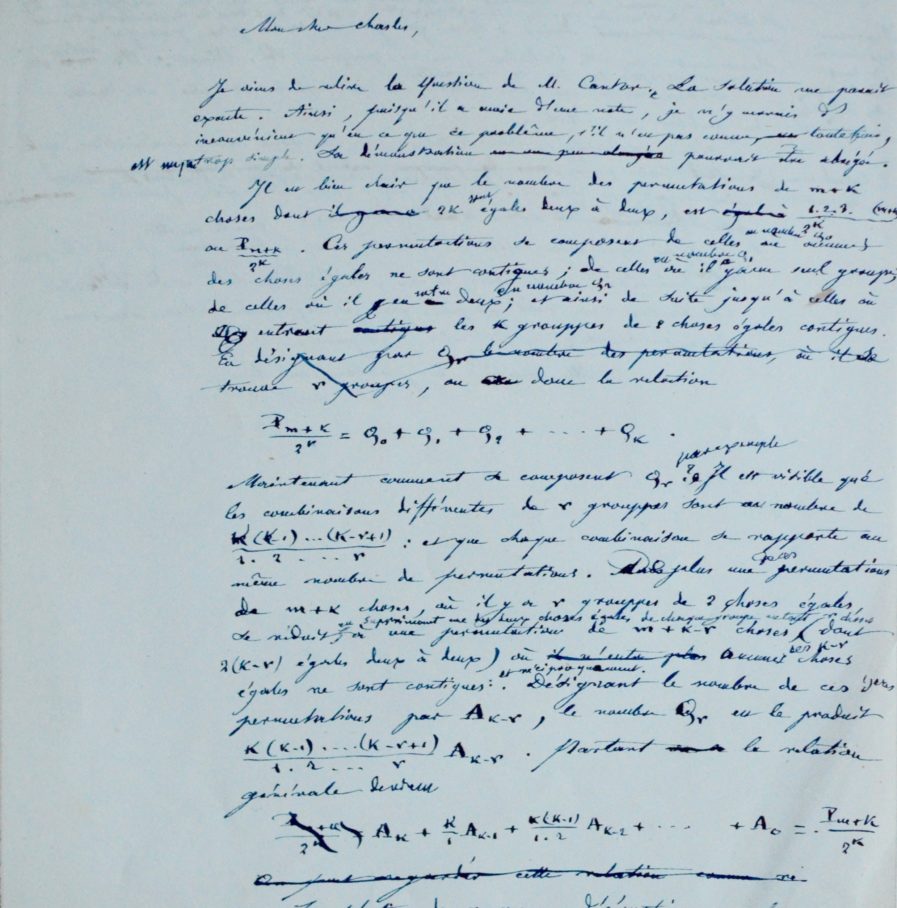 Mon cher Charles,
Je viens de relire la question de M. Cantor. La solution me parait
exacte. Ainsi, puisqu'il a envie d'une note, je n'y verrais d'
inconvénient qu'en ce que ce problème, s'il n'est pas connu, toutefois,
est trop simple. La démonstration pourrait être abrégée.
Il est bien clair que le nombre des permutations de m+k
choses dont 2k sont égales deux à deux, est 1.2.3. (m+k)/2^k
ou P_{m+k}/2^k. Ces permutations se composent de celles au nombre Q_0 où aucunes
des choses égales ne sont contigues; de celles au nombre Q_1 où il y a un seul grouppe;
de celles où il y en a deux; au nombre Q_2 et ainsi de suite jusqu'à celles où
entrent les k grouppes de 2 choses égales contigues.
En désignant par Q_r le nombre des permutations, où il se
trouve r grouppes, on a donc la relation
P_{m+k}/2^k = Q_0 + Q_1 + Q_2 + ..... + Q_k.
Maintenant comment se composent Q_r par exemple? Il est visible que
les combinaisons différentes de r grouppes sont au nombre de
k(k-1)...(k-r+1)/1.2....r : et que chaque combinaison se rapporte au
même nombre de permutations. De plus une des permutations
de m+k choses, où il y a r grouppes de 2 choses égales,
en supprimant une des deux choses égales de chaque grouppe
se réduit à une permutation de m+k-r choses (dont
2(k-r) égales deux à deux) où aucunes des k-r choses
égales ne sont contigues: et réciproquement. Désignant le nombre de ces
permutations par A_{k-r}, le nombre Q_r est le produit
k(k-1)....(k-r+1)/1.2....r A_{k-r}. Partant la relation
générale devient
A_k + k/1 A_{k-1} + k(k-1)/1.2 A_{k-2} + ..... + A_0 = P_{m+k}/2^k
On peut regarder cette relation comme